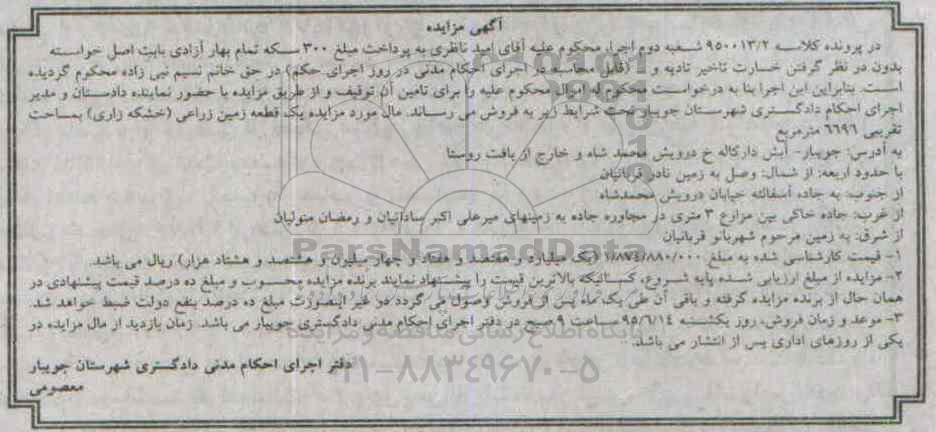 آگهی مزایده
در پرونده کلاسه ۹۵۰۰۱۳/۲ شعبه دوم اجرا، محکوم علیه آقای امید ناظری به پرداخت مبلغ ۳۰۰ سکه تمام بهار آزادی بابت اصل خواسته
بدون در نظر گرفتن خسارت تاخیر تادیه و ... (قابل محاسبه در اجرای احکام مدنی در روز اجرای حکم) در حق خانم نسیم نبی زاده محکوم گردیده
است. بنابراین این اجرا بنا به درخواست محکوم له اموال محکوم علیه را برای تامین آن توقیف و از طریق مزایده با حضور نماینده دادستان و مدیر
اجرای احکام دادگستری شهرستان جویبار تحت شرایط زیر به فروش می رساند. مال مورد مزایده یک قطعه زمین زراعی (خشکه زاری) بمساحت
تقریبی ۶۶۹۶ مترمربع
به آدرس: جویبار- آیش دارکاله خ درویش محمد شاه و خارج از بافت روستا
با حدود اربعه: از شمال: وصل به زمین نادر قربانیان
از جنوب: به جاده آسفالته خیابان درویش محمدشاه
از غرب: جاده خاکی بین مزارع ۳ متری در مجاورت جاده به زمینهای میرعلی اکبر ساداتیان و رمضان متولیان
از شرق: به زمین مرحوم شهربانو قربانیان
۱- قیمت کارشناسی شده به مبلغ ۱/۸۷۴/۸۸۰/۰۰۰ (یک میلیارد و هشتصد و هفتاد و چهار میلیون و هشتصد و هشتاد هزار) ریال می باشد.
۲- مزایده از مبلغ ارزیابی شده پایه شروع، کسانیکه بالاترین قیمت را پیشنهاد نمایند برنده مزایده محسوب و مبلغ ده درصد قیمت پیشنهادی در
همان حال از برنده مزایده گرفته و باقی آن طی یک ماه پس از فروش وصول می گردد در غیر اینصورت مبلغ ده درصد بنفع دولت ضبط خواهد شد.
۳- موعد و زمان فروش، روز یکشنبه ۹۵/۶/۱۴ ساعت ۹ صبح در دفتر اجرای احکام مدنی دادگستری جویبار می باشد. زمان بازدید از مال مزایده در
یکی از روزهای اداری پس از انتشار می باشد.
دفتر اجرای احکام مدنی دادگستری شهرستان جویبار
معصومی
ParsNamadData
پایگاه اطلاع رسانی مناقصه و مزایده
۰۲۱-۸۸۳۴۹۶۷۰-۵